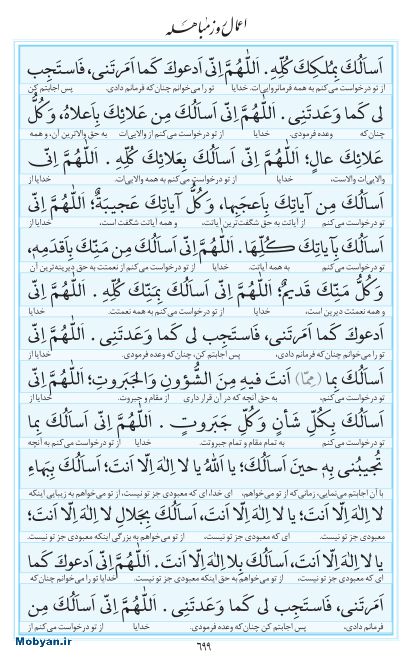 اعمال روز مباهله
اَسأَلُكَ بِمُلكِكَ كُلِّهِ . اَللّٰهُمَّ اِنّى اَدعوكَ كَما اَمَرتَنى، فَاستَجِب
از تو درخواست می‌کنم به همه فرمانروایی‌ات. خدایا تو را می‌خوانم چنان‌که فرمانم دادی. پس اجابتم کن
لى كَما وَعَدتَنى . اَللّٰهُمَّ اِنّى اَسأَلُكَ مِن عَلائِكَ بِاَعلاهُ، وَكُلُّ
چنان‌که وعده فرمودی. خدایا از تو درخواست می‌کنم از والایی‌ات به حق والاترین آن، و همه
عَلائِكَ عالٍ؛ اَللّٰهُمَّ اِنّى اَسأَلُكَ بِعَلائِكَ كُلِّهِ . اَللّٰهُمَّ اِنّى
والایی‌ات والاست، خدایا از تو درخواست می‌کنم به همه والایی‌ات. خدایا از
اَسأَلُكَ مِن آياتِكَ بِاَعجَبِها، وَكُلُّ آياتِكَ عَجيبَةٌ؛ اَللّٰهُمَّ اِنّى
تو درخواست می‌کنم از آیاتت به حق شگفت‌ترین آیاتت، و همه آیاتت شگفت است، خدایا از
اَسأَلُكَ بِآياتِكَ كُلِّها. اَللّٰهُمَّ اِنّى اَسأَلُكَ مِن مَنِّكَ بِاَقدَمِهِ،
تو درخواست می‌کنم به همه آیاتت. خدایا از تو درخواست می‌کنم از نعمتت به حق دیرینه‌ترین آن
وَكُلُّ مَنِّكَ قَديمٌ؛ اَللّٰهُمَّ اِنّى اَسأَلُكَ بِمَنِّكَ كُلِّهِ . اَللّٰهُمَّ اِنّى
و همه نعمتت دیرین است، خدایا از تو درخواست می‌کنم به همه نعمتت. خدایا
اَدعوكَ كَما اَمَرتَنى، فَاستَجِب لى كَما وَعَدتَنى . اَللّٰهُمَّ اِنّى
تو را می‌خوانم چنان‌که فرمانم دادی، پس اجابتم کن، چنان‌که وعده فرمودی. خدایا از
اَسأَلُكَ بِما (مِمّا) اَنتَ فيهِ مِنَ الشُّؤونِ وَالجَبَروتِ؛ اَللّٰهُمَّ اِنّى
تو درخواست می‌کنم، به حق آنچه که در آن قرار داری از مقام و جبروت. خدایا از
اَسأَلُكَ بِكُلِّ شَأنٍ وَكُلِّ جَبَروتٍ . اَللّٰهُمَّ اِنّى اَسأَلُكَ بِما
تو درخواست می‌کنم، به تمام مقام و تمام جبروتت. خدایا از تو درخواست می‌کنم به آنچه
تُجيبُنى بِهِ حينَ اَسأَلُكَ؛ يا اَللّٰهُ يا لا اِلٰهَ اِلّا اَنتَ؛ اَسأَلُكَ بِبَهاءِ
با آن اجابتم می‌نمایی، زمانی‌که از تو می‌خواهم، ای خدا، ای که معبودی جز تو نیست، از تو می‌خواهم به زیبایی اینکه
لا اِلٰهَ اِلّا اَنتَ؛ يا لا اِلٰهَ اِلّا اَنتَ، اَسأَلُكَ بِجَلالِ لا اِلٰهَ اِلّا اَنتَ؛
معبودی جز تو نیست. ای که معبودی جز تو نیست، از تو می‌خواهم به بزرگی اینکه معبودی جز تو نیست.
يا لا اِلٰهَ اِلّا اَنتَ، اَسأَلُكَ بِلا اِلٰهَ اِلّا اَنتَ . اَللّٰهُمَّ اِنّى اَدعوكَ كَما
ای که معبودی جز تو نیست، از تو می‌خواهم به حق اینکه معبودی جز تو نیست. خدایا تو را می‌خوانم چنان‌که
اَمَرتَنى، فَاستَجِب لى كَما وَعَدتَنى . اَللّٰهُمَّ اِنّى اَسأَلُكَ مِن
فرمانم دادی، پس اجابتم کن چنان‌که وعده فرمودی. خدایا از تو درخواست می‌کنم از
Mobyan.ir
٦٩٩